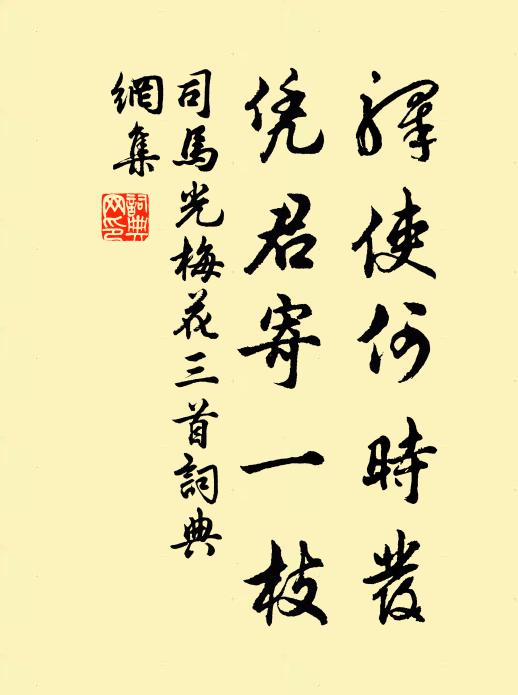 驛使何時發
凭君寄一枝
司馬光梅花三首詞典
網集
詞典
网印